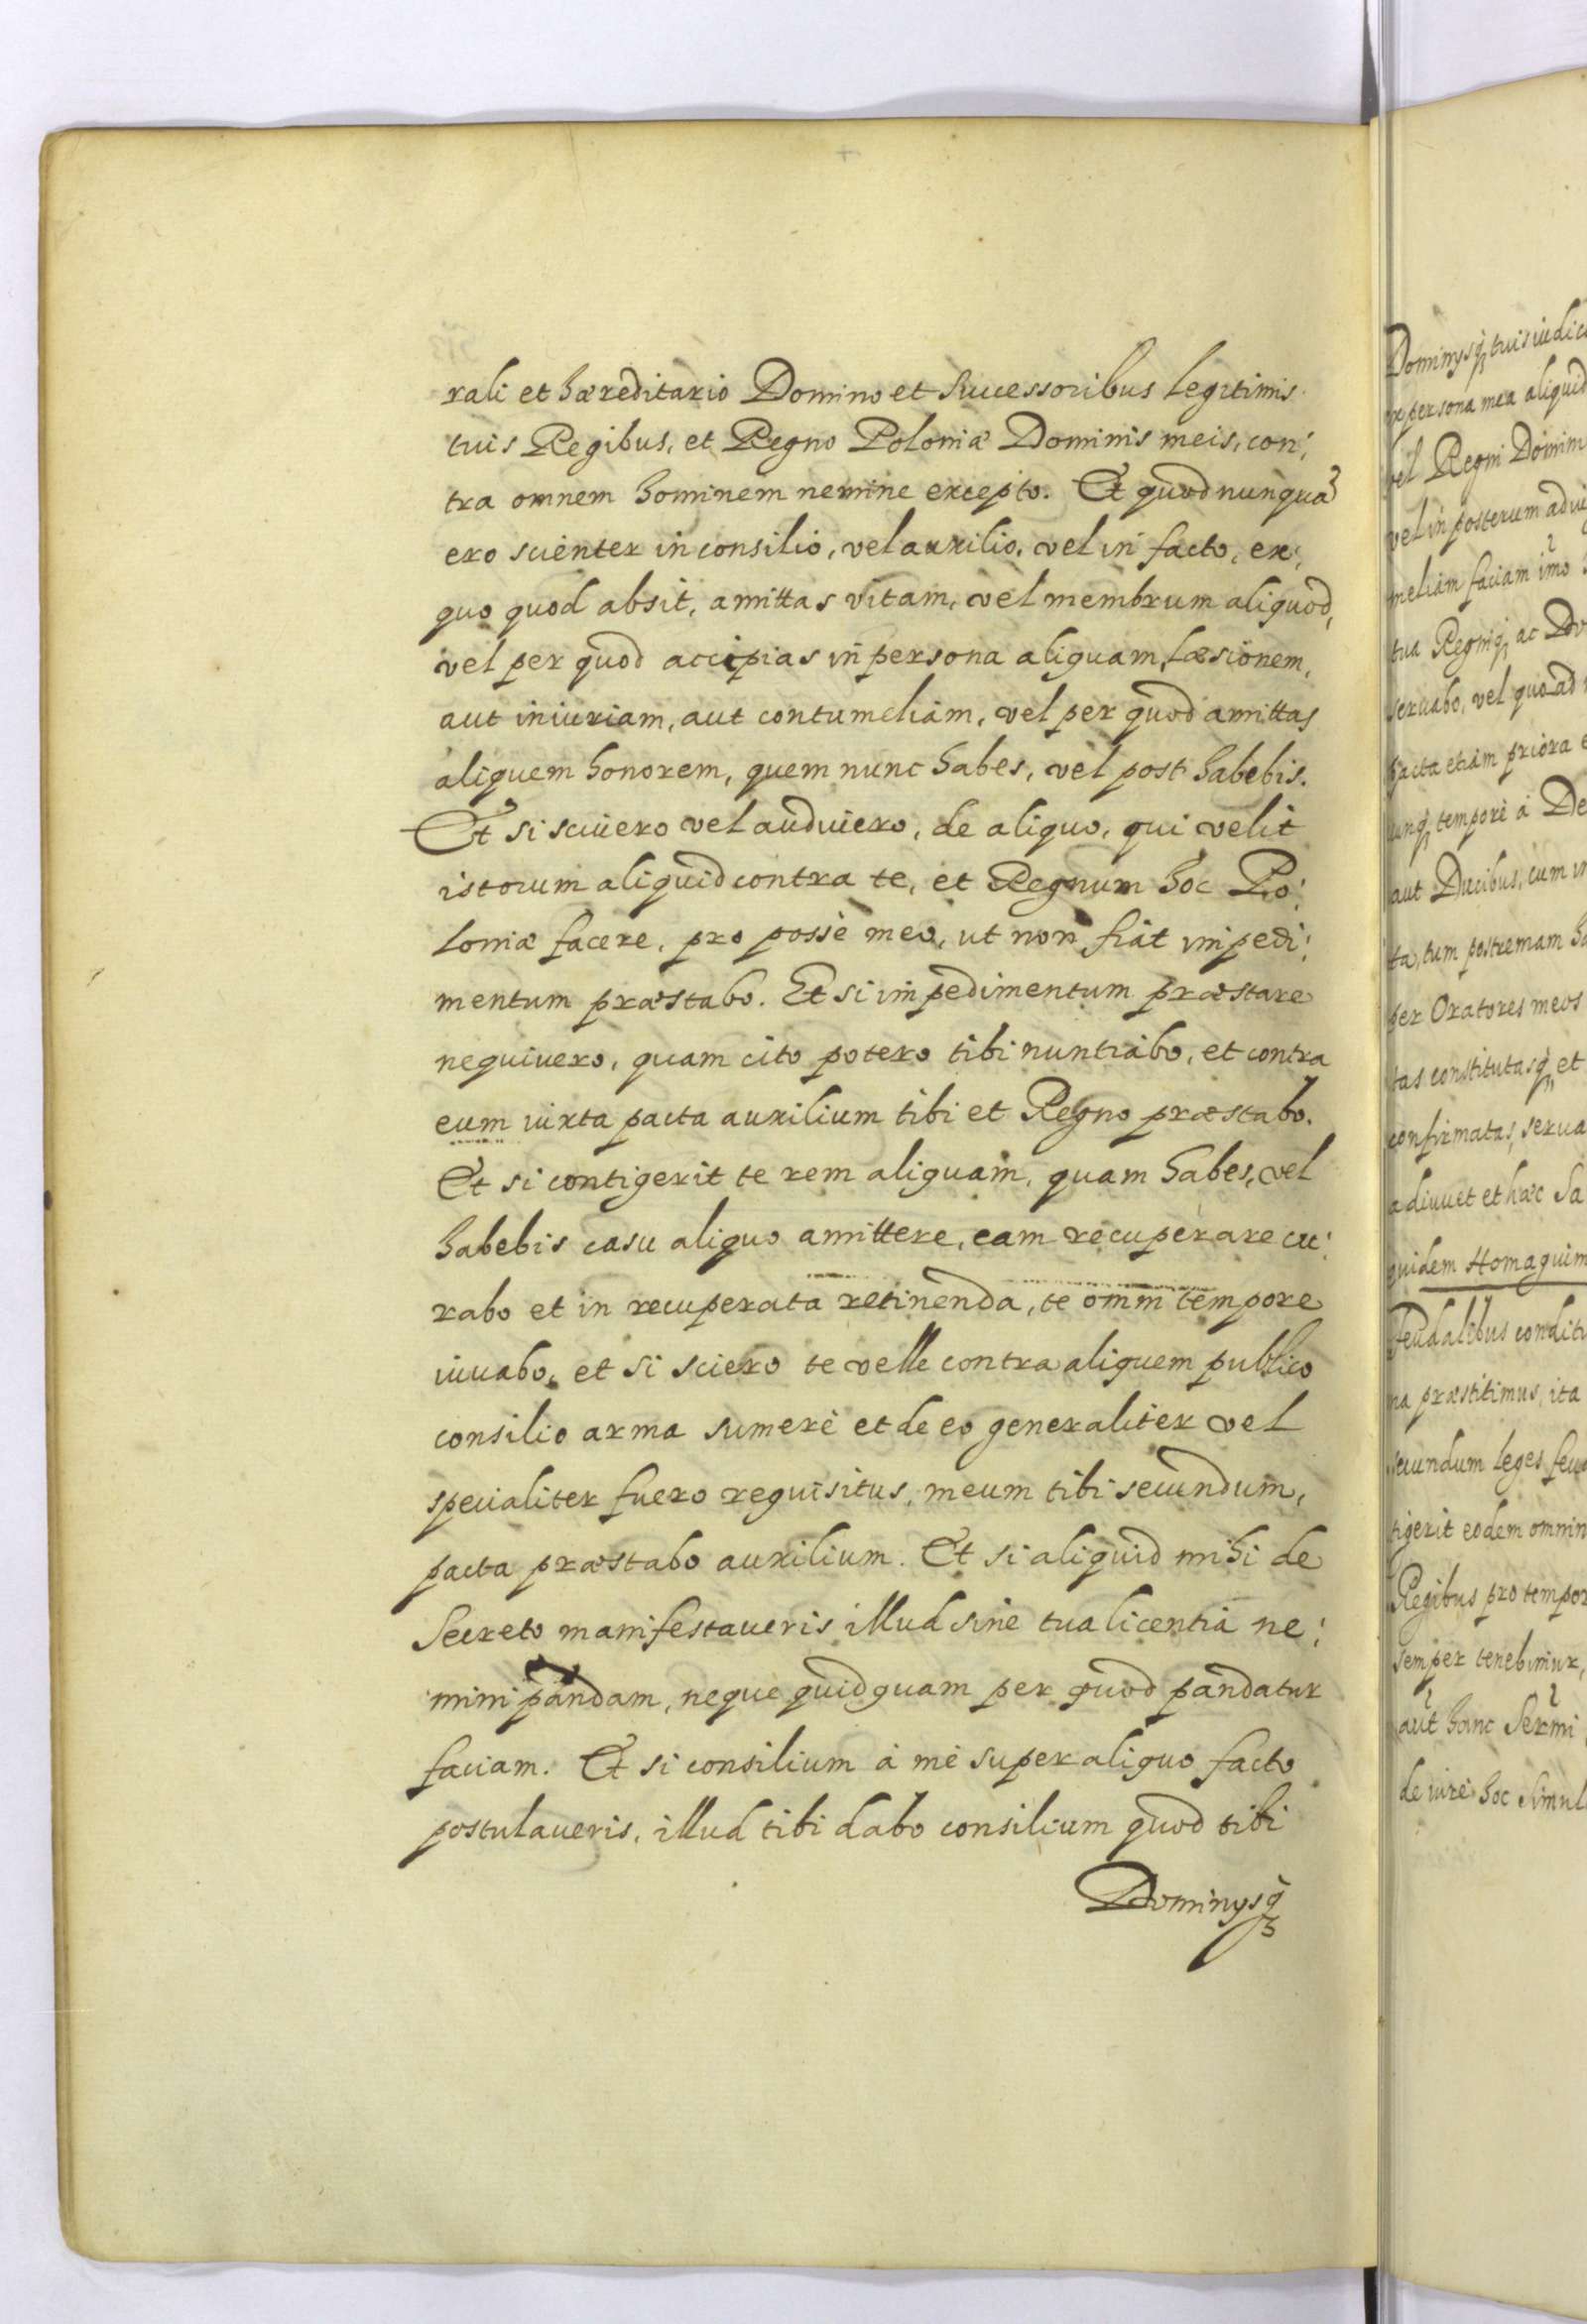 rali et hæreditario Domino et Successoribus legitimis
tuis Regibus, et Regno Poloniæ Dominis meis, con:
tra omnem hominem nemine excepto. Et quod nunquã
ero scienter in consilio, vel auxilio, vel in facto, ex,
quo quod absit, amittas vitam, vel membrum aliquod,
vel per quod accipias in persona aliquam læsionem,
aut iniuriam, aut contumeliam, vel per quod amittas
aliquem honorem, quem nunc habes, vel post habebis.
Et si sciuero vel audiuero, de aliquo, qui velit
istorum aliquid contra te, et Regnum hoc Po:
loniæ facere, pro posse meo, ut non fiat impedi:
mentum præstabo. Et si impedimentum præstare
nequiuero, quam cito potero tibi nuntiabo, et contra
eum iuxta pacta auxilium tibi et Regno præstabo.
Et si contigerit te rem aliquam, quam habes, vel
habebis casu aliquo amittere, eam recuperare cu:
rabo et in recuperata retinenda, te omni tempore
iuuabo, et si sciero te velle contra aliquem publico
consilio arma sumere et de eo generaliter vel
specialiter fuero requisitus, meum tibi secundum,
pacta præstabo auxilium. Et si aliquid mihi de
Secreto manifestaueris illud sine tua licentia ne:
mini pandam, neque quidquam per quod pandatur
faciam. Et si consilium à me super aliquo facto
postulaueris, illud tibi dabo consilium quod tibi
Dominysq3
Dominysq3 tuis iudic
persona mea aliquid
vel Regni Domim
vel in posterum ad
meliam faciam imo
tua Regniq3 ac Do
seruabo, vel quo ad
pacta etiam priora
unq3 tempore à De
aut Ducibus, cum in
ta, tum postremam ha
per Oratores meos
tas constitutasq3 et
confirmatas, serua
adiuuet et hæc Sa
quidem Homagium
feudalibus conditi
na præstitimus, ita
secundum leges feu
tigerit eodem omnin
Regibus pro tempor
semper tenebimur,
aut hanc Sermi
de iure hoc simul